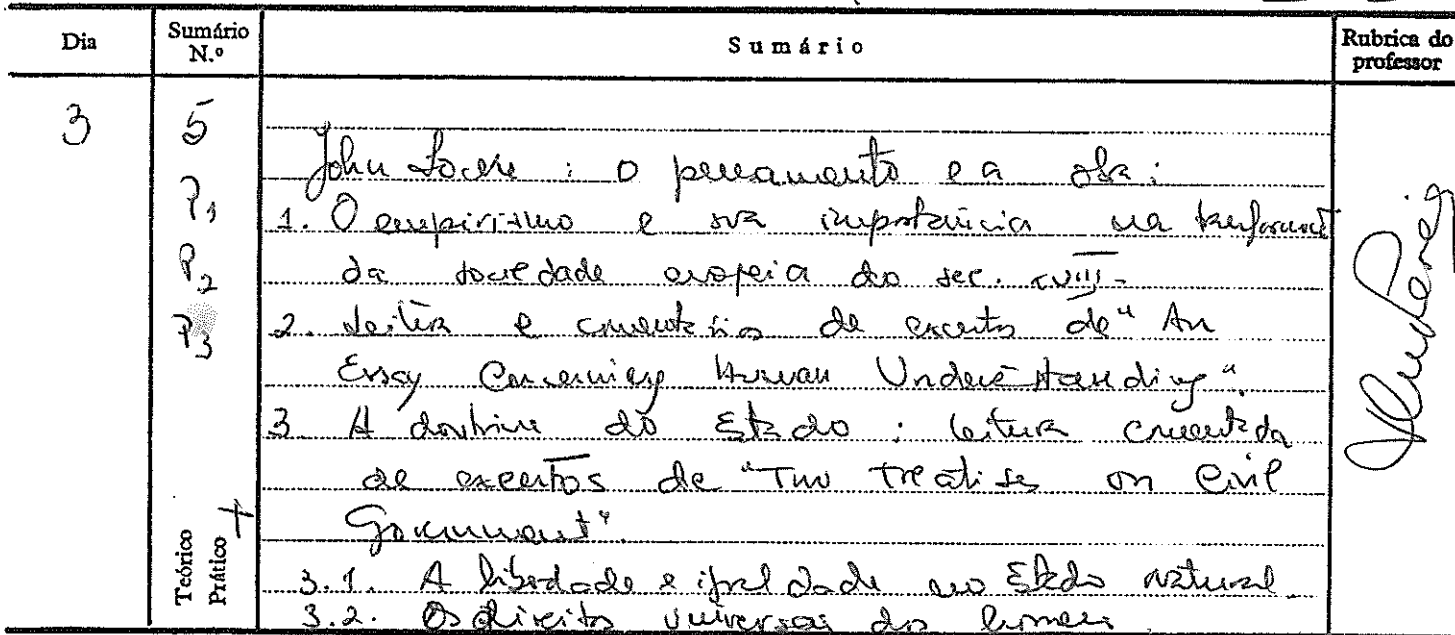 Dia Sumário N.º Sumário Rubrica do professor
3 5
John Locke : o pensamento e a obra :
P1 1. O empirismo e sua importância na
P2 da sociedade europeia do sec. XVIII -
P3 2. Leitura e comentários de excertos de "An
Essay Concerning Human Understanding".
3. A doutrina do Estado : leitura comentada
de excertos de "Two treatises on Civil
Government".
Teórico
Prático +
3.1. A liberdade e igualdade no Estado natural.
3.2. Os direitos universais do homem.